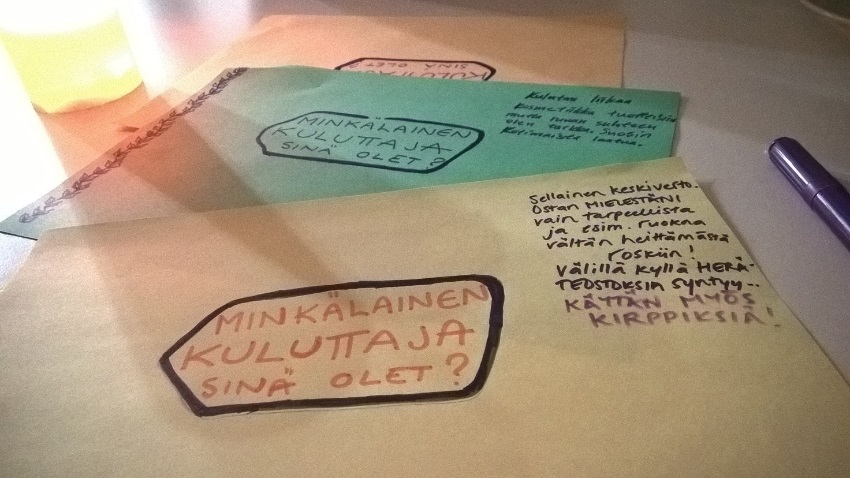 KULUTTAJA
SINÄ OLET?
MINKÄLAINEN
KULUTTAJA
SINÄ OLET?
Kulutan liikaa
kosmetiikka tuotteisiin
mutta ruuan suhteen
olen tarkka. Suosin
Kotimaista laatua.
MINKÄLAINEN
KULUTTAJA
SINÄ OLET?
Sellainen keskiverto.
Ostan MIELESTÄNI
vain tarpeellista
ja esim. ruokaa
vältän heittämästä
roskiin!
Välillä kyllä HERÄ-
TEOSTOKSIA syntyy...
KÄYTÄN MYÖS
KIRPPIKSIÄ!